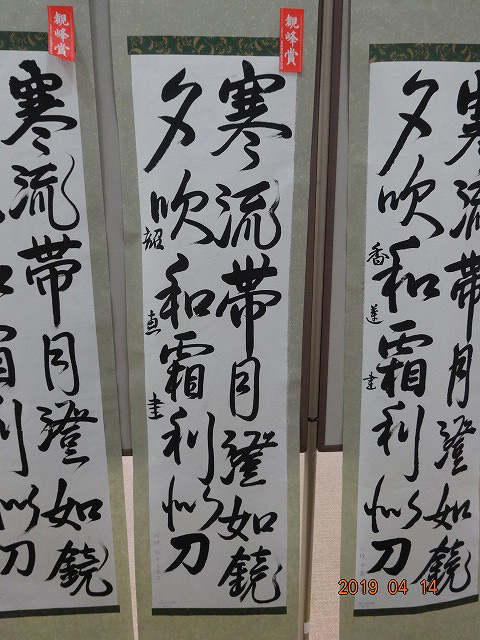 観峰賞
寒流帯月澄如鏡
夕吹和霜利似刀
観峰賞
寒流帯月澄如鏡
夕吹和霜利似刀
寒流帯月澄如鏡
夕吹和霜利似刀
香蓮書
2019 04 14